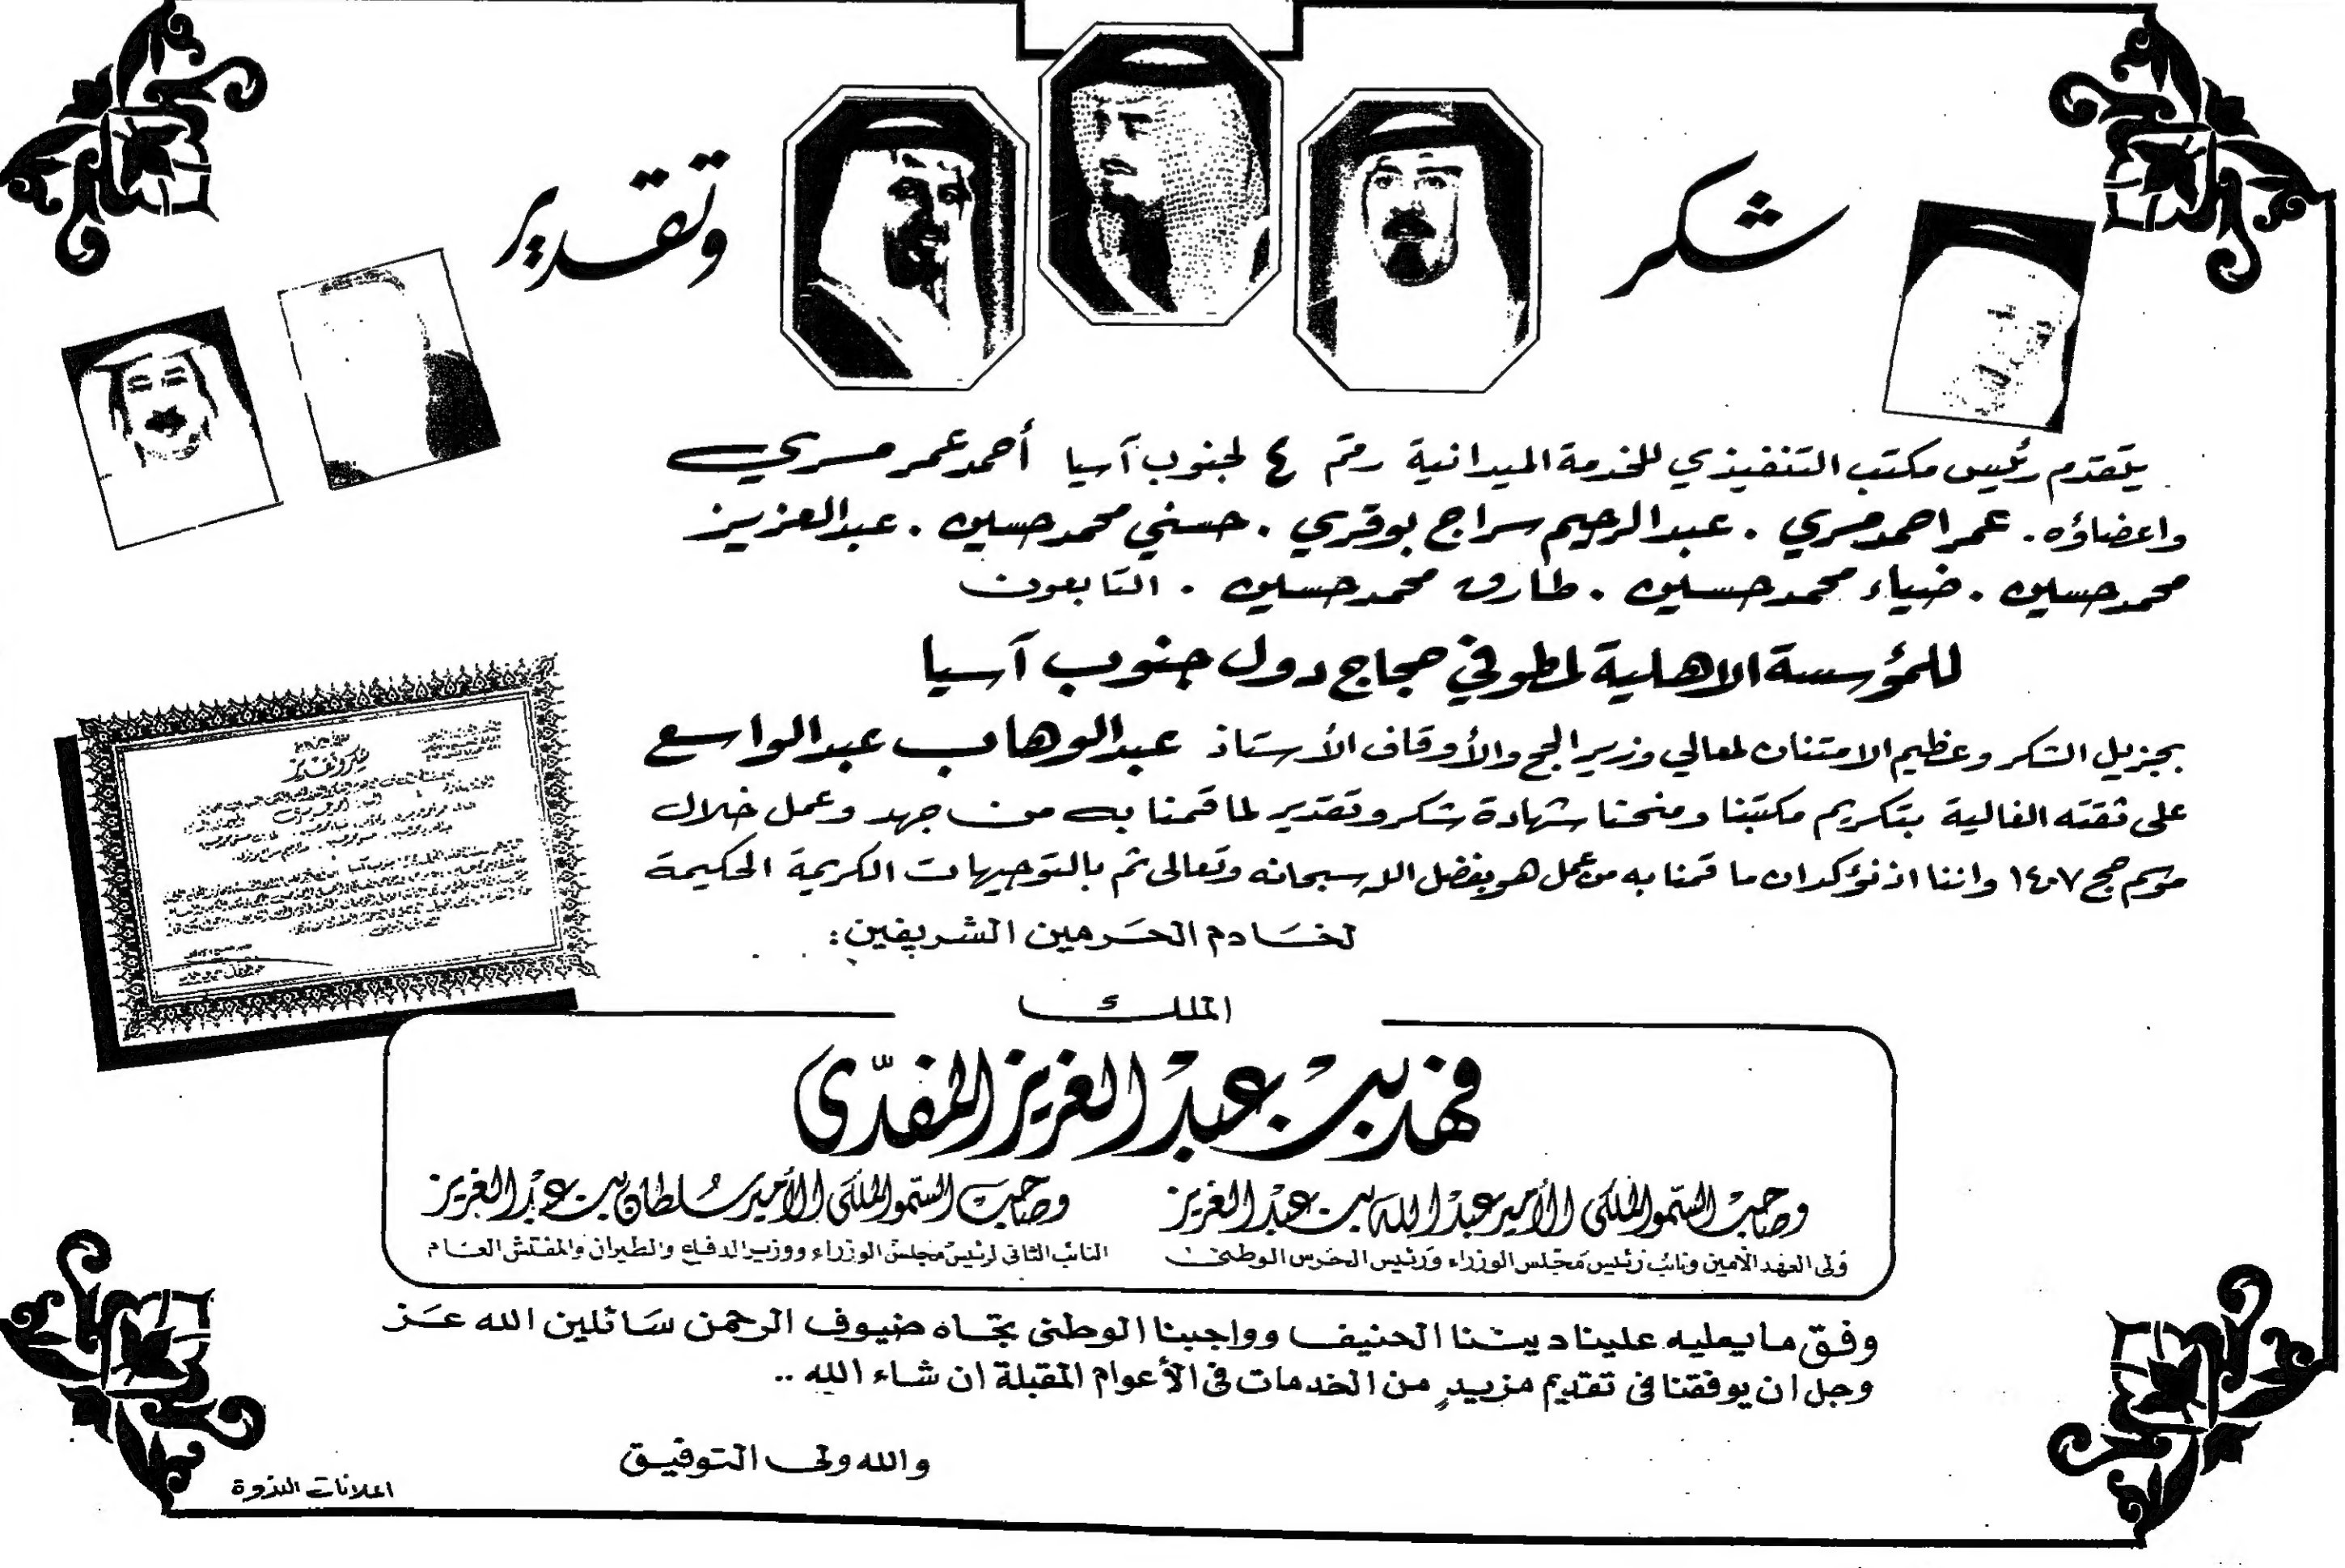 شكر وتقدير
يتقدم رئيس مكتب التنفيذي للخدمة الميدانية رقم ٤ لجنوب آسيا أحمد عمر مسري
واعضاؤه . عمر احمد مسري . عبدالرحيم سراج بوقري . حسني محمد حسين . عبدالعزيز
محمد حسين . ضياء محمد حسين . طارق محمد حسين . التابعون
للمؤسسة الاهلية لمطوفي حجاج دول جنوب آسيا
بجزيل الشكر وعظيم الامتنان لمعالي وزير الحج والأوقاف الأستاذ عبدالوهاب عبدالواسع
على ثقته الغالية بتكريم مكتبنا ومنحنا شهادة شكر وتقدير لما قمنا به من جهد وعمل خلال
موسم حج ١٤٠٧ واننا اذ نؤكد ان ما قمنا به من عمل هو بفضل الله سبحانه وتعالى ثم بالتوجيهات الكريمة الحكيمة
لخادم الحرمين الشريفين:
الملك
فهد بن عبد العزيز المفدّى
وصاحب السمو الملكي الأمير عبد الله بن عبد العزيز
ولي العهد الأمين ونائب رئيس مجلس الوزراء ورئيس الحرس الوطني
وصاحب السمو الملكي الأمير سلطان بن عبد العزيز
النائب الثاني لرئيس مجلس الوزراء ووزير الدفاع والطيران والمفتش العام
وفق ما يمليه علينا ديننا الحنيف وواجبنا الوطني تجاه ضيوف الرحمن سائلين الله عز
وجل ان يوفقنا في تقديم مزيدٍ من الخدمات في الأعوام المقبلة ان شاء الله ..
والله ولي التوفيق
اعلانات الندوة